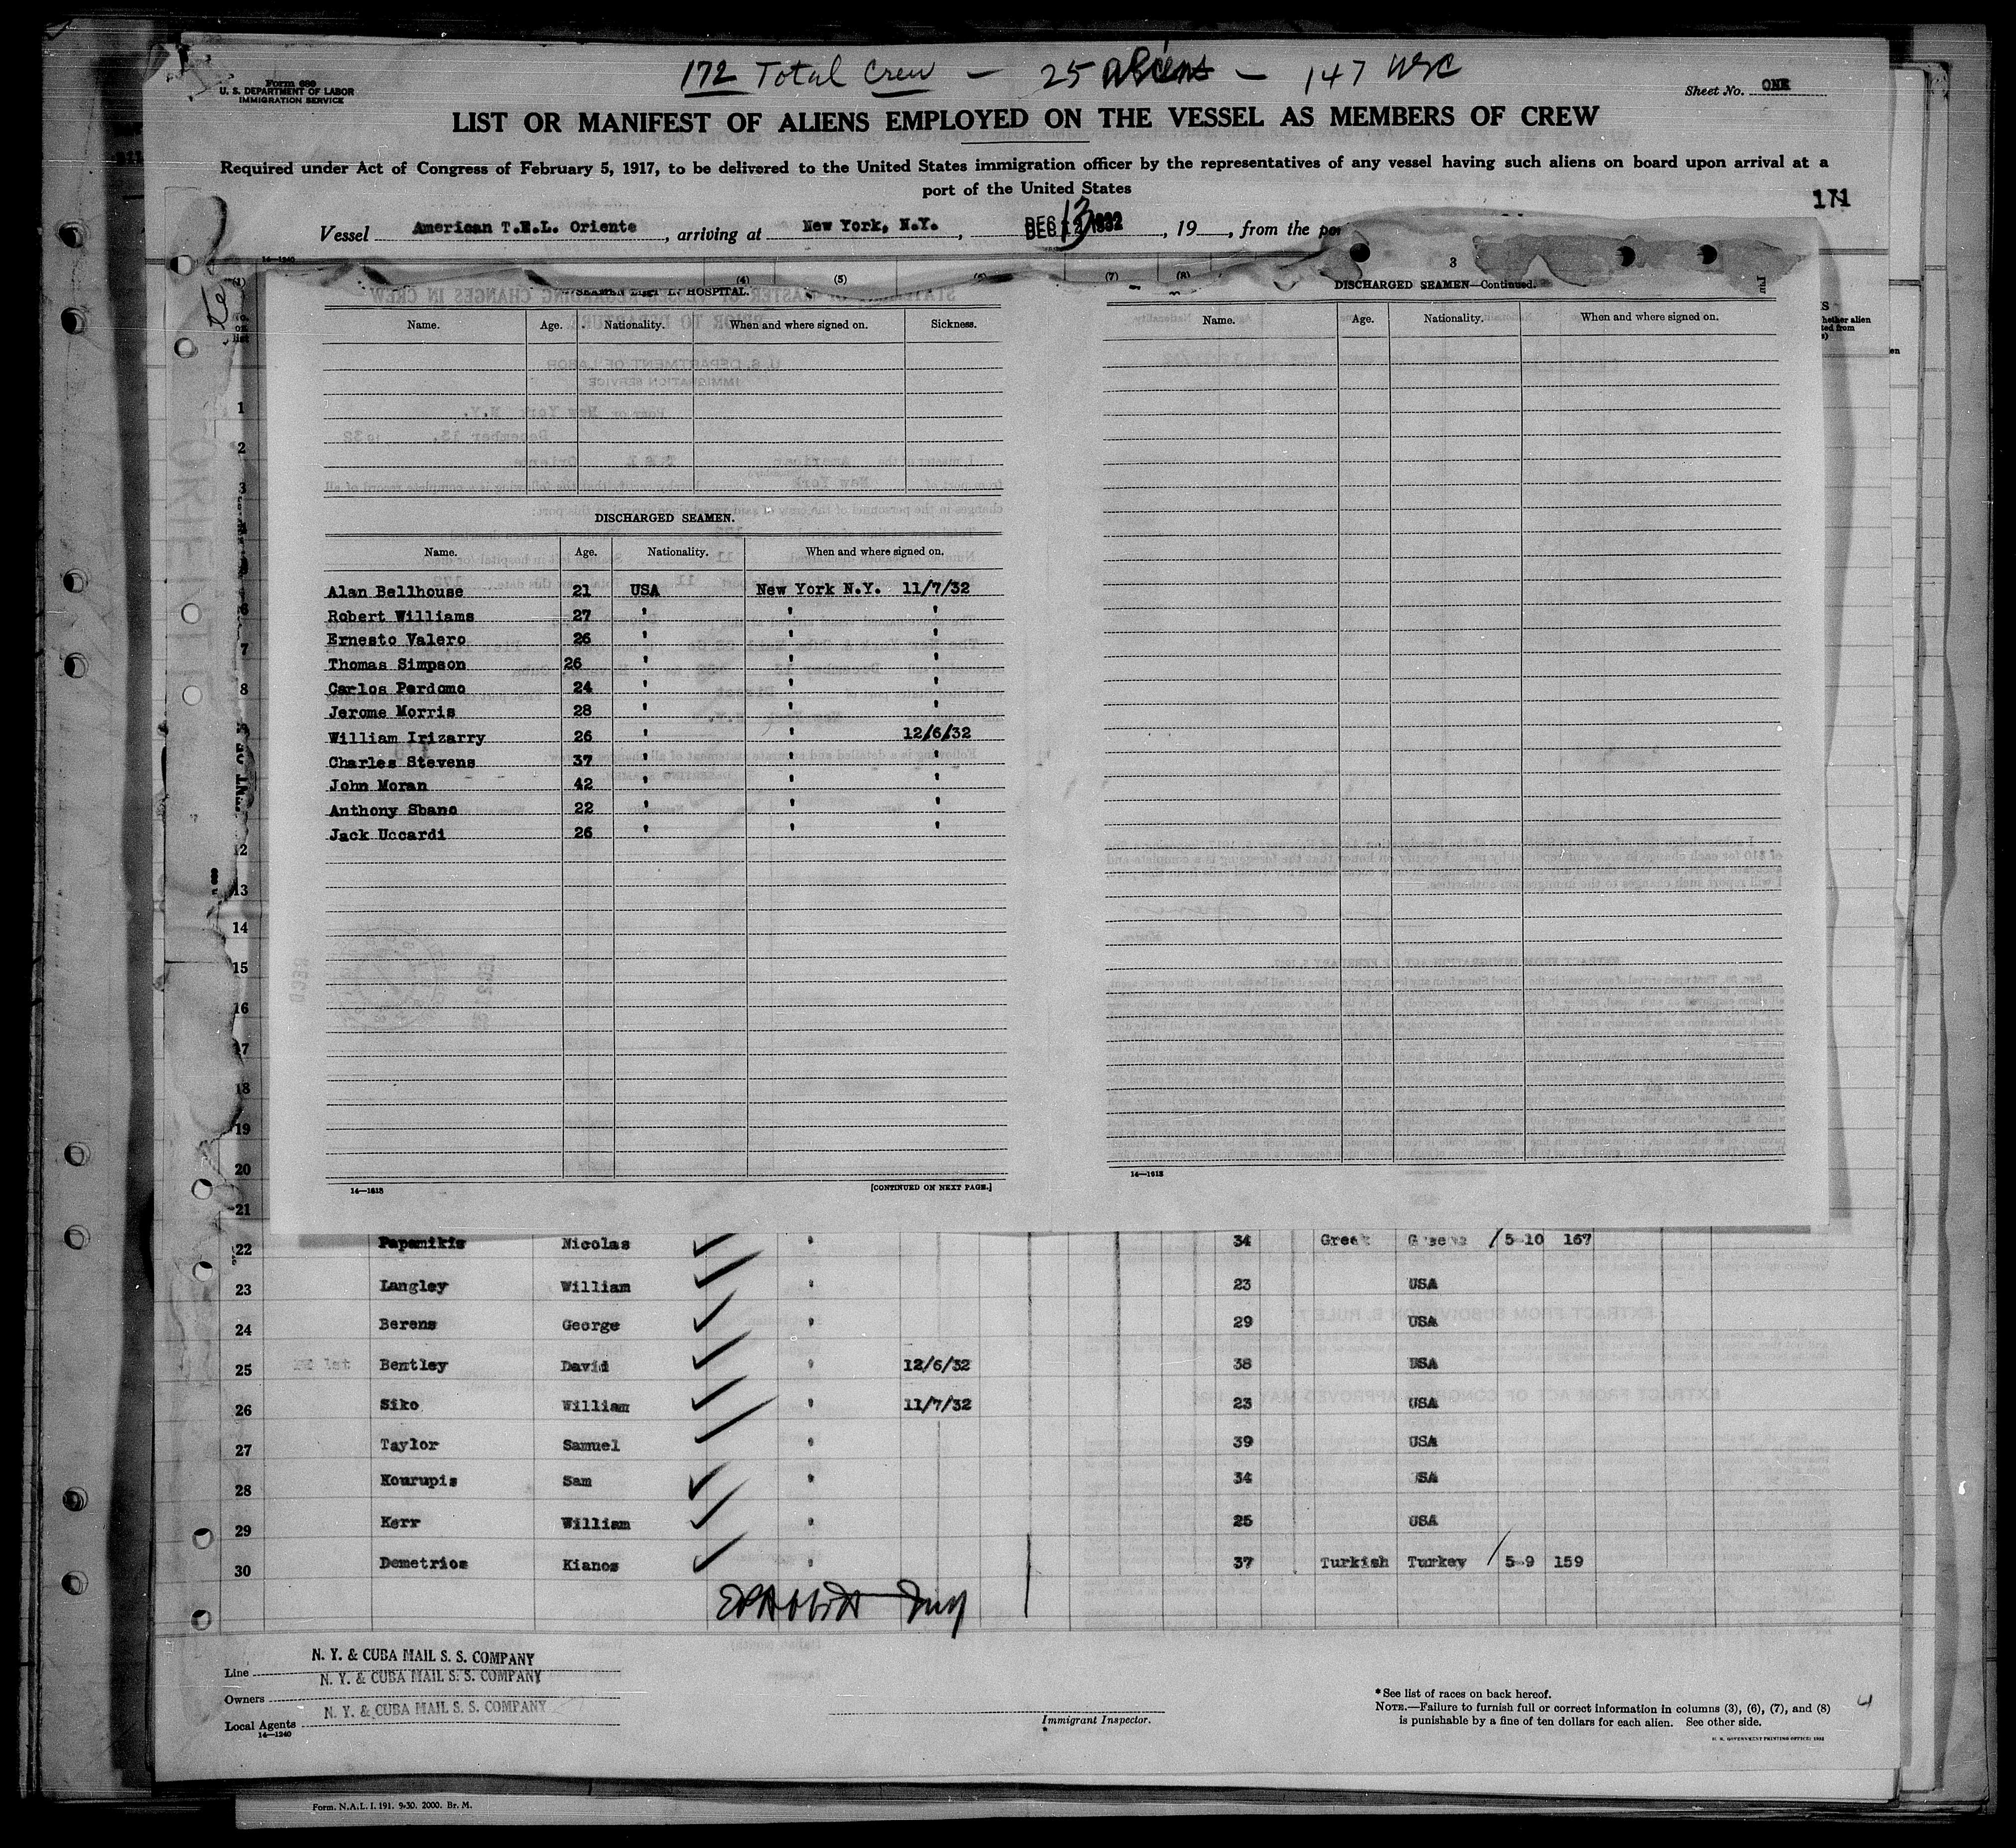 172 Total Crew — 25 Aliens — 147 USC
Form 689
U. S. DEPARTMENT OF LABOR
IMMIGRATION SERVICE
Sheet No. ONE
LIST OR MANIFEST OF ALIENS EMPLOYED ON THE VESSEL AS MEMBERS OF CREW
Required under Act of Congress of February 5, 1917, to be delivered to the United States immigration officer by the representatives of any vessel having such aliens on board upon arrival at a
port of the United States
171
Vessel American T.E.L. Oriente, arriving at New York, N.Y., DEC 13 1932, 19 , from the
14—1240
(4) (5) (6) (7) (8)
HOSPITAL.
Name. Age. Nationality. When and where signed on. Sickness.
DISCHARGED SEAMEN.
Name. Age. Nationality. When and where signed on.
Alan Bellhouse 21 USA New York N.Y. 11/7/32
Robert Williams 27 " " "
Ernesto Valero 26 " " "
Thomas Simpson 26 " " "
Carlos Perdomo 24 " " "
Jerome Morris 28 " " "
William Irizarry 26 " " 12/6/32
Charles Stevens 37 " " "
John Moran 42 " " "
Anthony Sbano 22 " " "
Jack Uccardi 26 " " "
14—1618 [CONTINUED ON NEXT PAGE.]
3
DISCHARGED SEAMEN—Continued.
Name. Age. Nationality. When and where signed on.
14—1618
1
2
3
7
8
12
13
14
15
16
17
18
19
20
21
22 Papamikis Nicolas " 34 Greek Greece 5-10 167
23 Langley William " 23 USA
24 Berens George " 29 USA
25 1st Bentley David " 12/6/32 38 USA
26 Siko William " 11/7/32 23 USA
27 Taylor Samuel " 39 USA
28 Kourupis Sam " 34 USA
29 Kerr William " 25 USA
30 Demetrios Kianos " 37 Turkish Turkey 5-9 159
Line N. Y. & CUBA MAIL S. S. COMPANY
Owners N. Y. & CUBA MAIL S. S. COMPANY
Local Agents N. Y. & CUBA MAIL S. S. COMPANY
14—1240
Immigrant Inspector.
*See list of races on back hereof.
NOTE.—Failure to furnish full or correct information in columns (3), (6), (7), and (8)
is punishable by a fine of ten dollars for each alien. See other side.
U. S. GOVERNMENT PRINTING OFFICE: 1932
4
Form. N.A.L.I. 191. 9-30. 2000. Br. M.